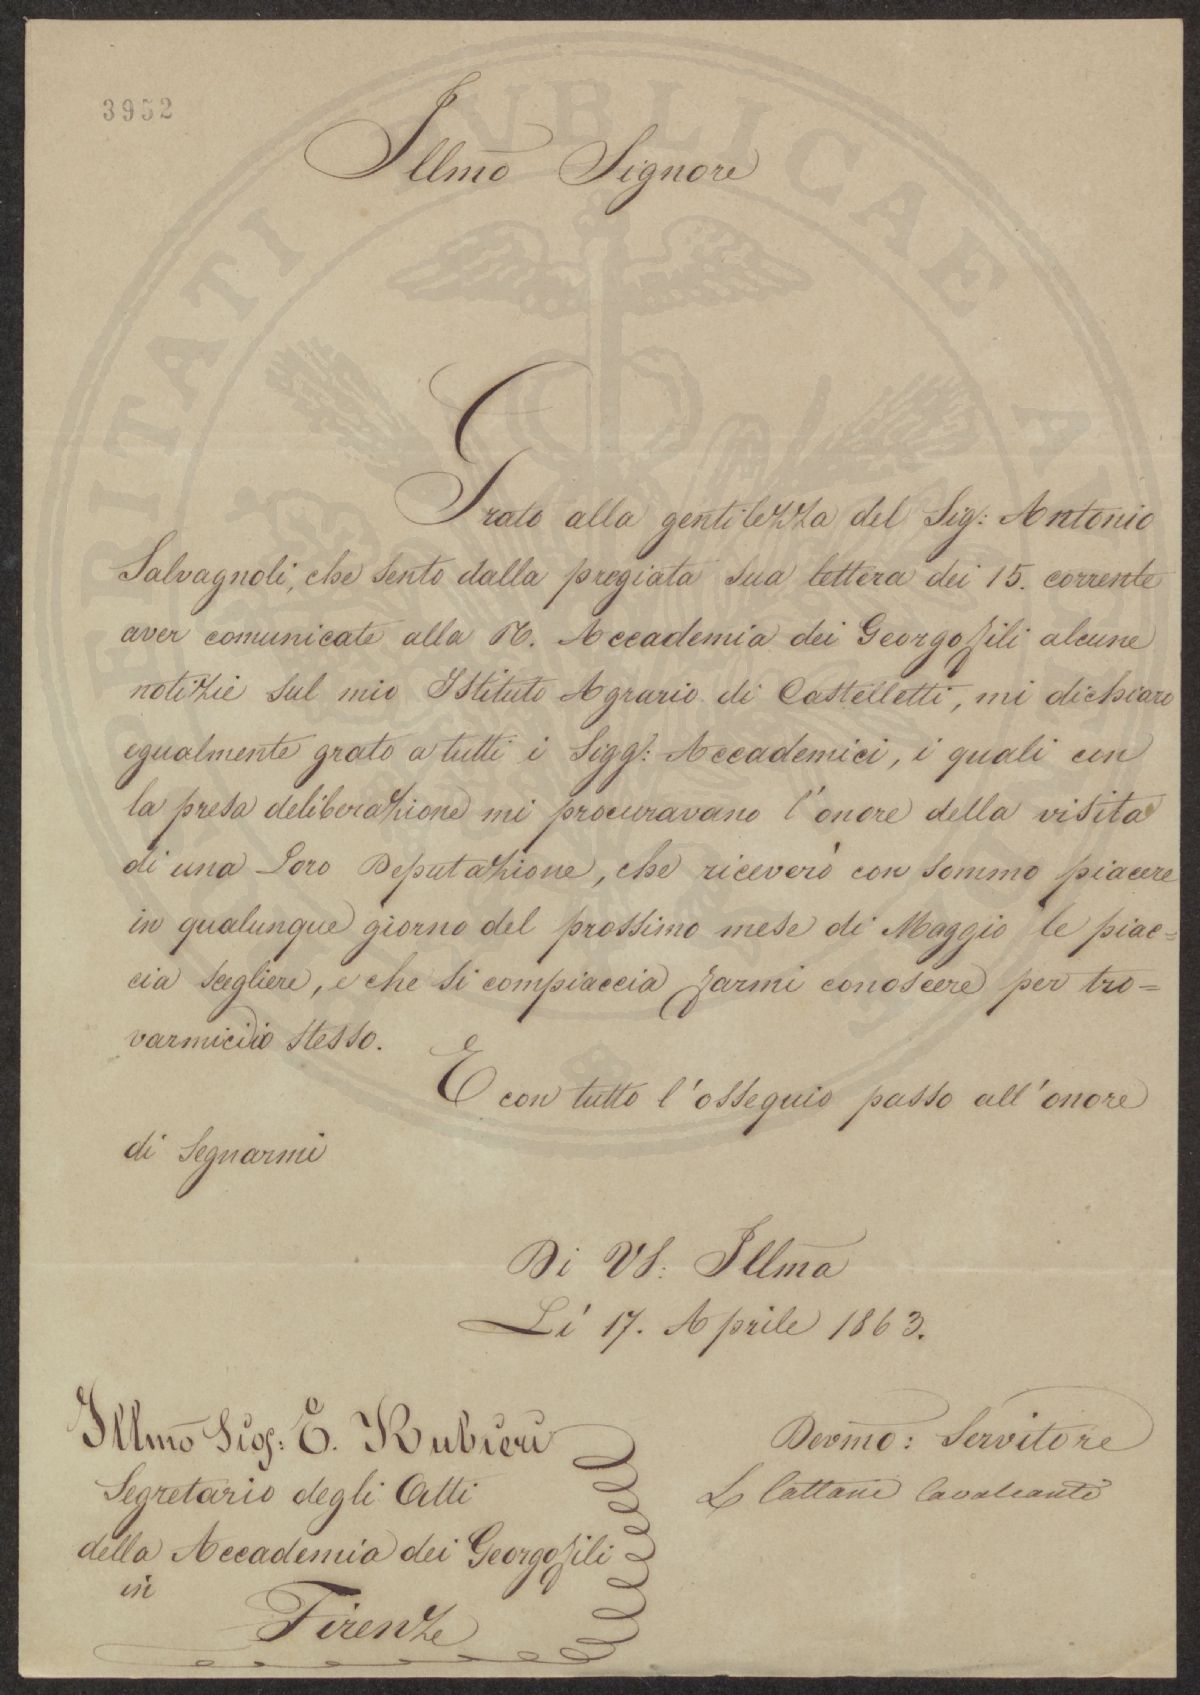 3952
Illmo Signore
Grato alla gentilezza del Sig: Antonio
Salvagnoli, che sento dalla pregiata sua lettera dei 15. corrente
aver comunicate alla R. Accademia dei Georgofili alcune
notizie sul mio Istituto Agrario di Castelletti, mi dichiaro
egualmente grato a tutti i Sigg: Accademici, i quali con
la presa deliberazione mi procuravano l'onore della visita
di una Loro Deputazione, che riceverò con sommo piacere
in qualunque giorno del prossimo mese di Maggio le piac=
cia scegliere, e che si compiaccia farmi conoscere per tro=
varmici io stesso.
E con tutto l'ossequio passo all'onore
di segnarmi
Di VS: Illma
Li 17. Aprile 1863.
Illmo Sig: E. Rubieri
Segretario degli Atti
della Accademia dei Georgofili
in
Firenze
Devmo: Servitore
L Cattani Cavalcanti
PROSPERITATI PUBLICAE AU